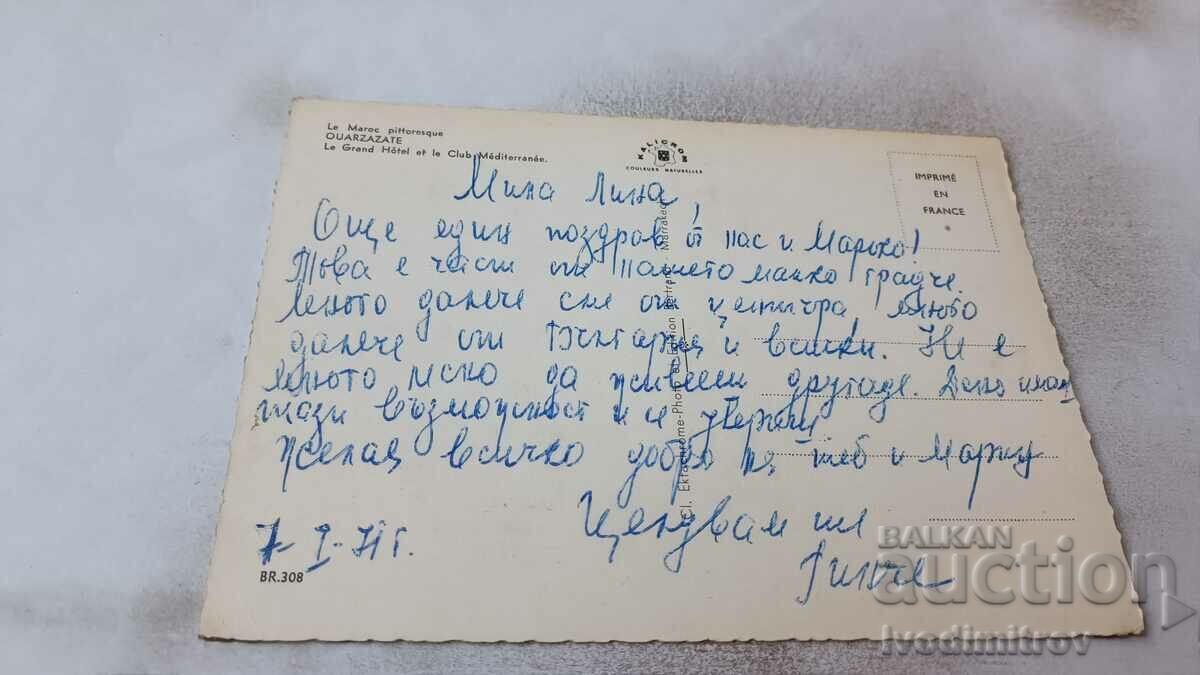 Le Maroc pittoresque
OUARZAZATE
Le Grand Hôtel et le Club Méditerranée.
KALICROM
COULEURS NATURELLES
IMPRIMÉ
EN
FRANCE
Мила Лина,
Още един поздрав от нас и Мароко!
Това е част от нашето малко градче.
далече сме от центъра,
далече от България и всички. Не е
леко да живееш другаде.
тази възможност и се
Желая всичко добро на теб и
Целувам те
7-I-71 г.
BR.308
BALKAN
auction
Ivodimitrov